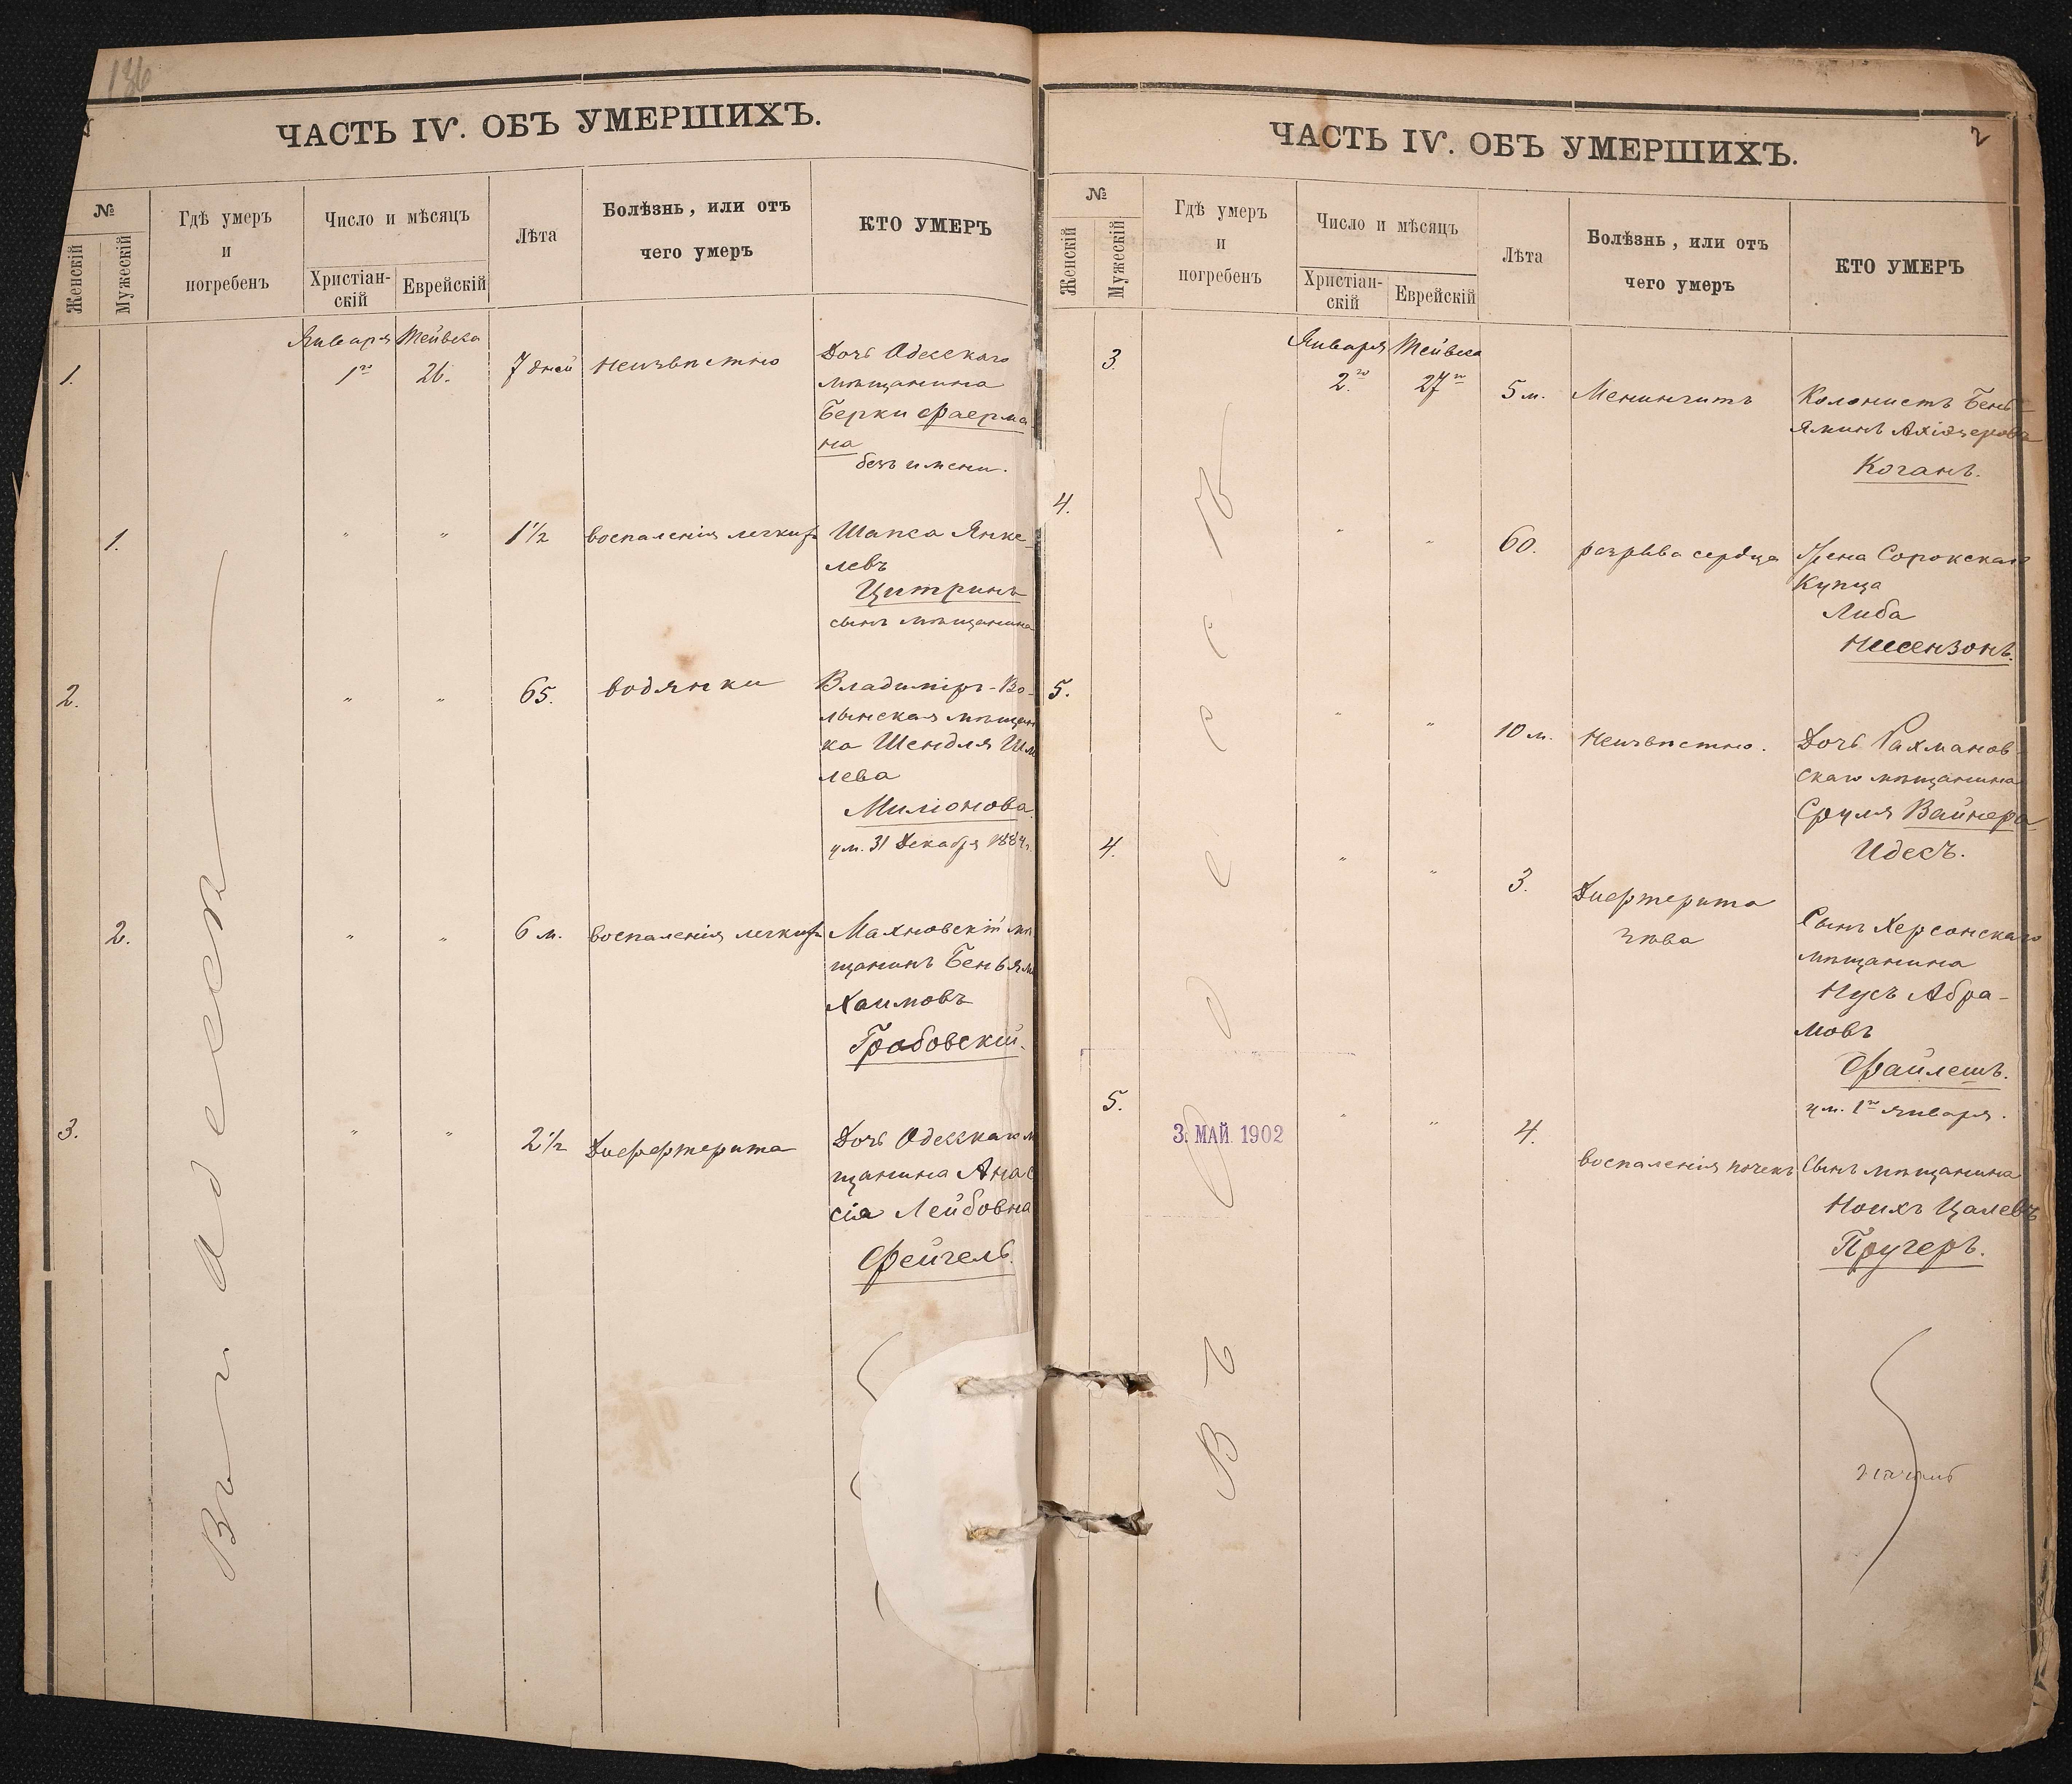 136
ЧАСТЬ IV. ОБЪ УМЕРШИХЪ.
№
Женскій
Мужескій
Гдѣ умеръ
и
погребенъ
Число и мѣсяцъ
Христіан-
скій
Еврейскій
Лѣта
Болѣзнь, или отъ
чего умеръ
КТО УМЕРЪ
Января Тейвеса
1.
1го
26.
7 дней
неизвѣстно
Дочь Одесскаго
мѣщанина
Берки Фаерма-
на
безъ имени.
1.
"
"
1 1/2
воспаленія легкихъ
Шапса Янке-
левъ
Цитринъ
сынъ мѣщанина
2.
"
"
65.
водянки
Владимiръ-Во-
лынская мѣщан
ка Шендля
лева
Миліонова.
ум. 31 Декабря 1884г.
2.
"
"
6 м.
воспаленія легкихъ
Махновскій мѣ
щанинъ Беньями
Хаимовъ
Грабовскій.
3.
"
"
2 1/2
Диффтерита
Дочь Одесскаго м
щанина Анас
сія Лейбовна
Фейгель.
Въ г. Одессѣ
ЧАСТЬ IV. ОБЪ УМЕРШИХЪ.
2
№
Женскій
Мужескій
Гдѣ умеръ
и
погребенъ
Число и мѣсяцъ
Христіан-
скій
Еврейскій
Лѣта
Болѣзнь, или отъ
чего умеръ
КТО УМЕРЪ
Января Тейвеса
3.
2.го
27го
5 м.
Менингитъ
Колонистъ Бень-
яминъ
Коганъ.
4.
"
"
60.
разрыва сердца
Жена Сорокскаго
Купца
Либа
Несензонъ.
5.
"
"
10 м.
неизвѣстно.
Дочь Рахманов-
скаго мѣщанина
Сруля Вайнера
Идесъ.
4.
"
"
3.
Дифтерита
зѣва
Сынъ Херсонскаго
мѣщанина
Нусъ Абра-
мовъ
Файлешъ.
ум. 1го января.
5.
"
"
4.
воспаленія почекъ
Сынъ мѣщанина
Ноихъ Цалевъ
Пругеръ.
Въ Одессѣ
3. МАЙ. 1902